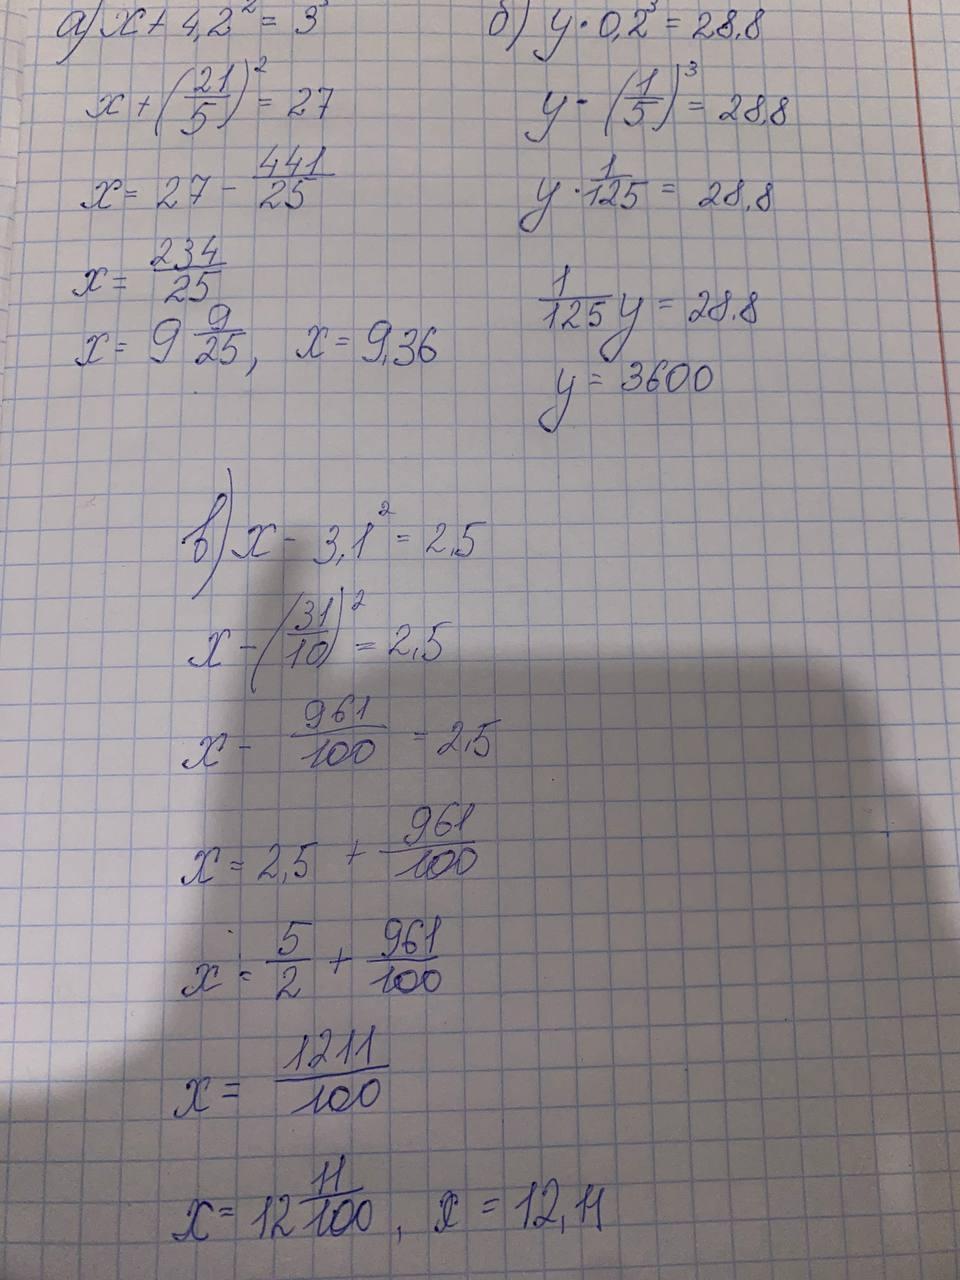 а) x + 4,2² = 3³
x + (21/5)² = 27
x = 27 - 441/25
x = 234/25
x = 9 9/25, x = 9,36
б) y · 0,2³ = 28,8
y · (1/5)³ = 28,8
y · 1/125 = 28,8
1/125 y = 28,8
y = 3600
в) x - 3,1² = 2,5
x - (31/10)² = 2,5
x - 961/100 = 2,5
x = 2,5 + 961/100
x = 5/2 + 961/100
x = 1211/100
x = 12 11/100, x = 12,11